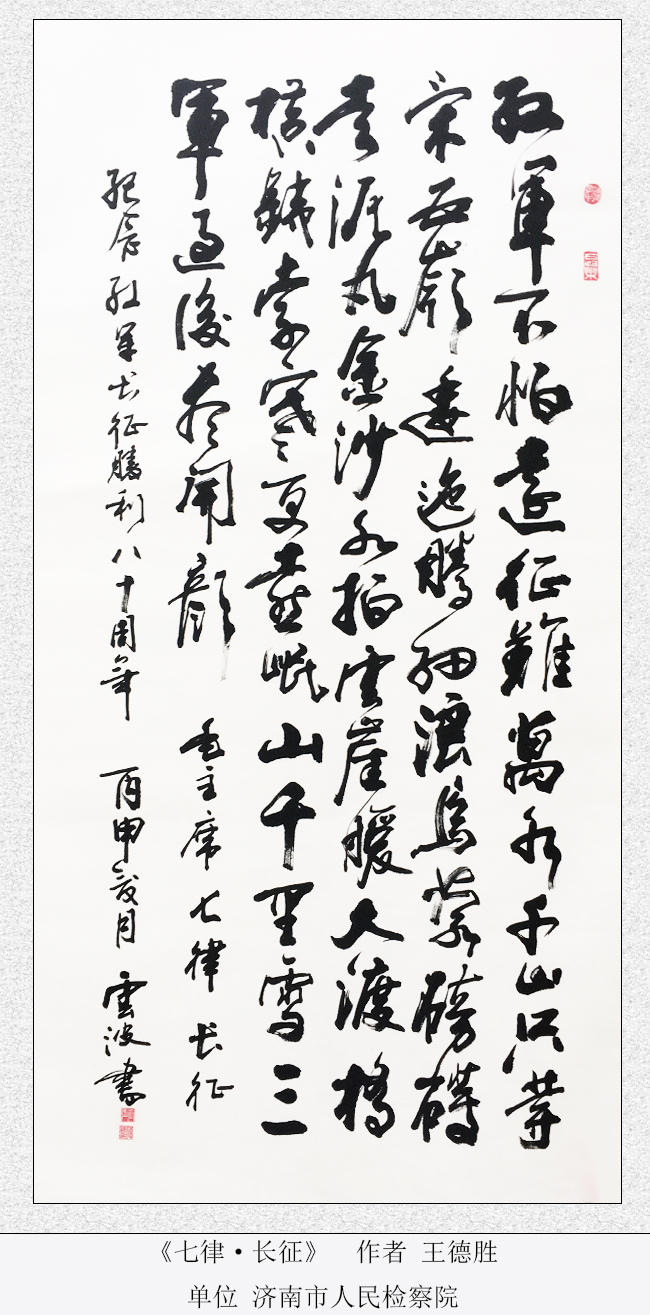 紅軍不怕遠征難萬水千山只等
閑五嶺逶迤騰細浪烏蒙磅礴
走泥丸金沙水拍雲崖暖大渡橋
橫鐵索寒更喜岷山千里雪三
軍過後盡開顏 毛主席七律 長征
紀念紅軍長征勝利八十周年 丙申月 雲波書
《七律·长征》 作者 王德胜
单位 济南市人民检察院